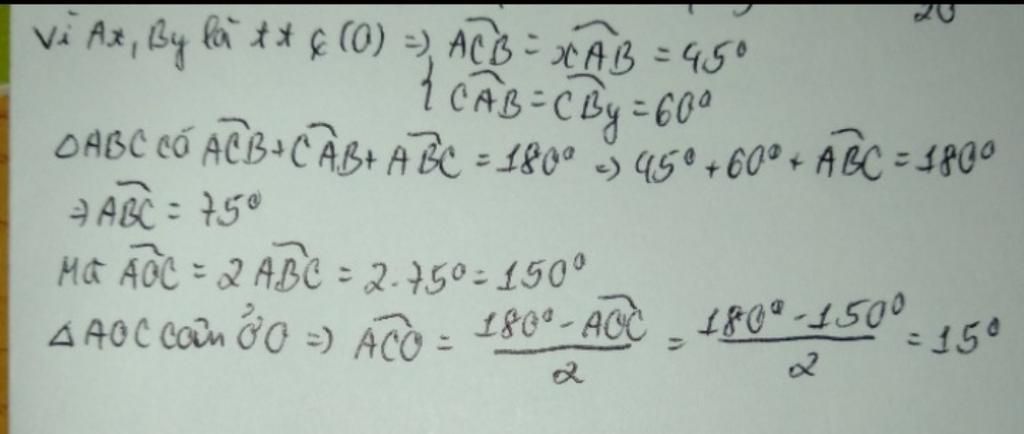 Vì Ax, By là tt ç (O) => { ACB = xAB = 45°
CAB = CBy = 60°
△ABC có ACB + CAB + ABC = 180° => 45° + 60° + ABC = 180°
=> ABC = 75°
Mà AOC = 2 ABC = 2.75° = 150°
△AOC cân ở O => ACO = (180° - AOC)/2 = (180° - 150°)/2 = 15°